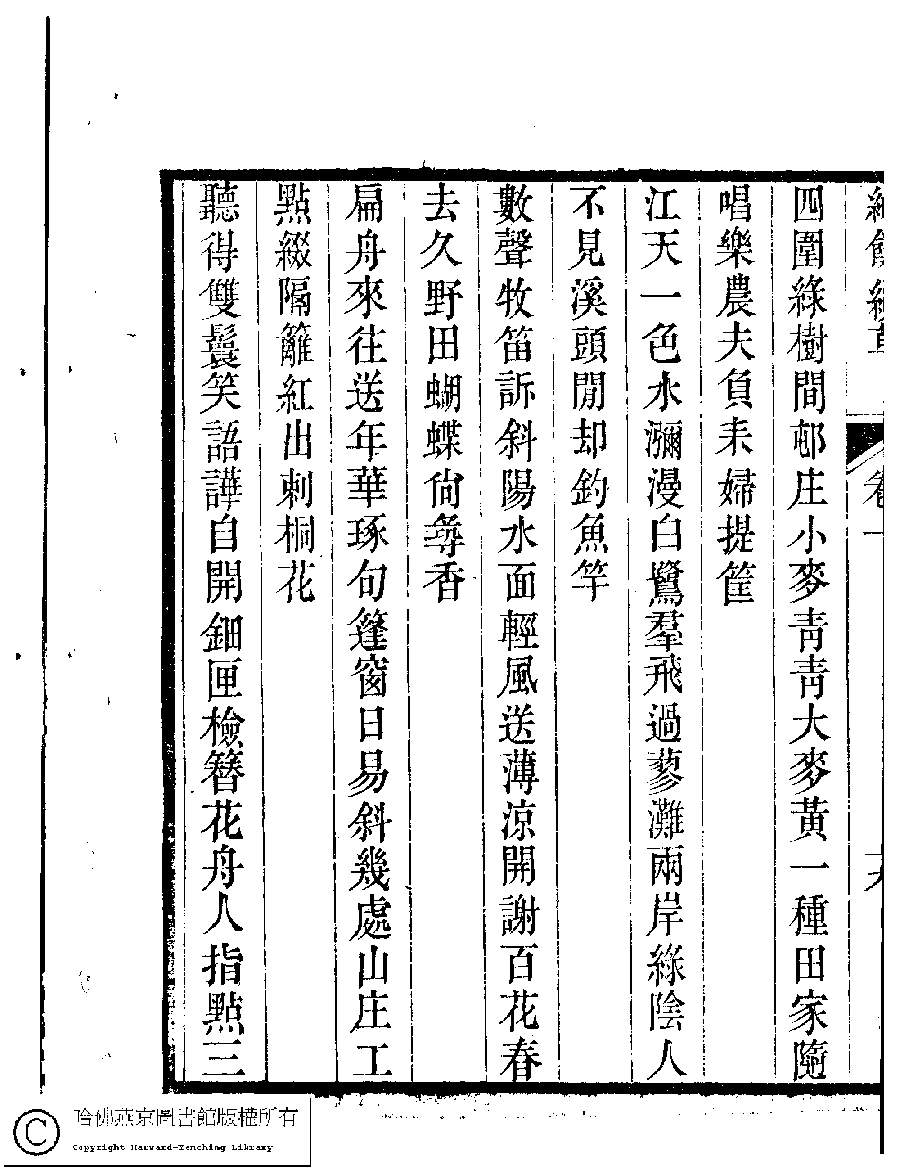 卷一
四圍綠樹間邨庄小麥青青大麥黃一種田家隨
唱樂農夫負耒婦提筐
江天一色水瀰漫白鷺羣飛過蓼灘兩岸綠陰人
不見溪頭閒却釣魚竿
數聲牧笛訴斜陽水面輕風送薄涼開謝百花春
去久野田蝴蝶尙尋香
扁舟來往送年華琢句篷窗日易斜幾處山庄工
點綴隔籬紅出刺桐花
聽得雙鬟笑語譁自開鈿匣檢簪花舟人指點三
哈佛燕京圖書館版權所有
Copyright Harvard-Yenching Library